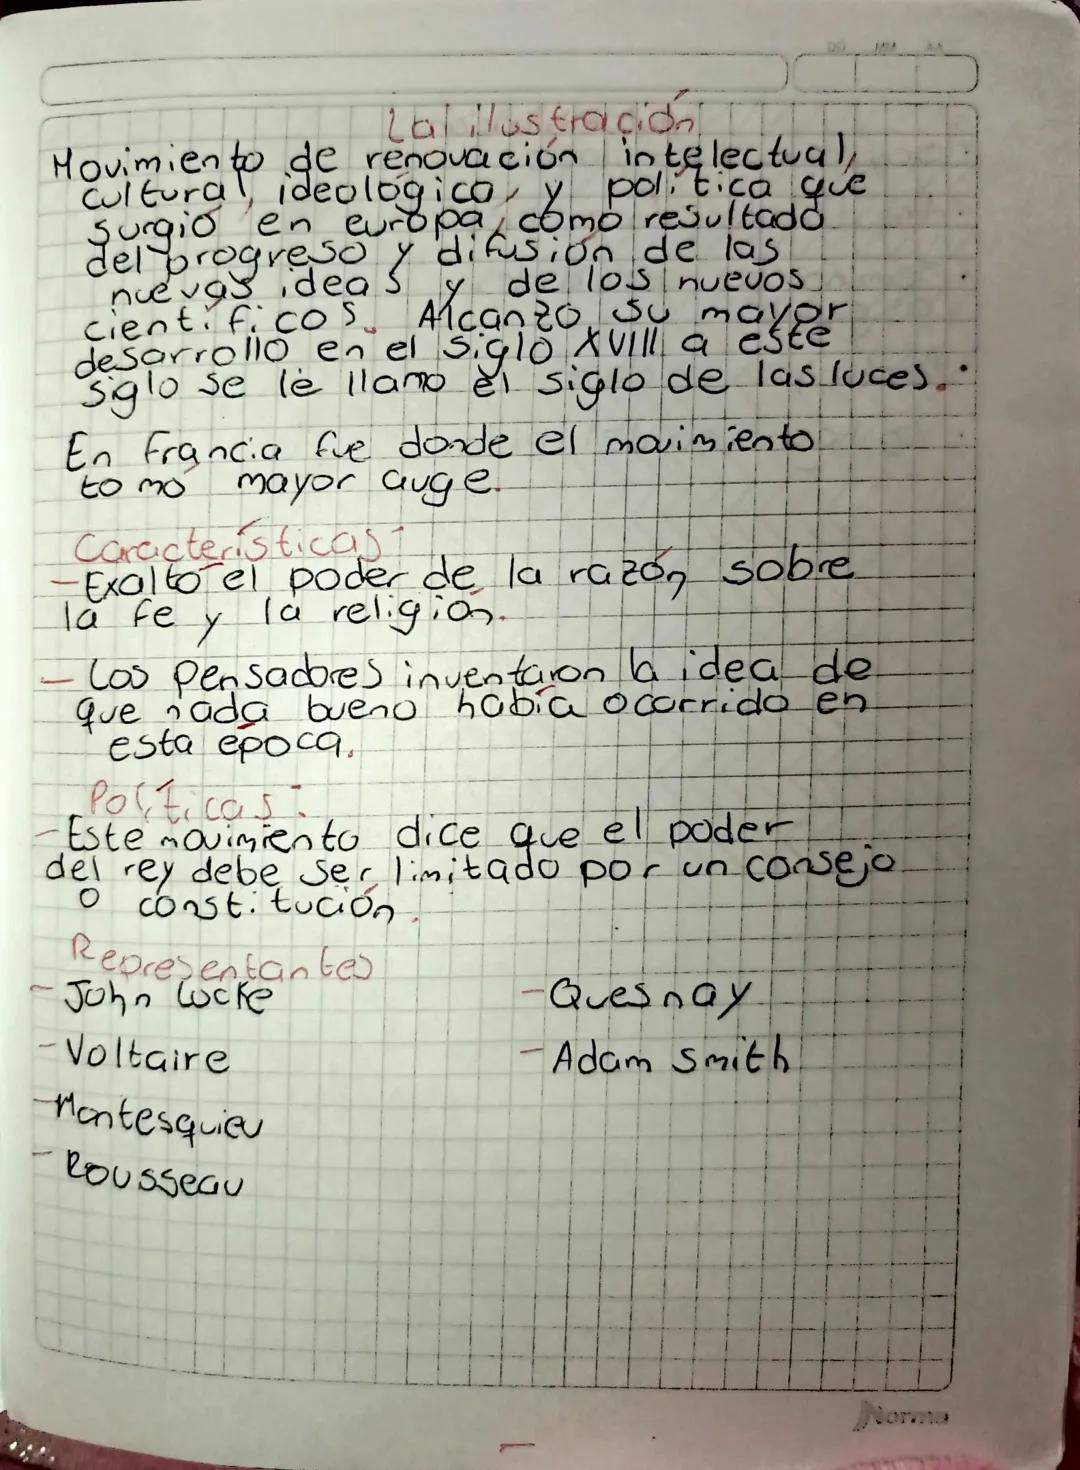 DD MM AA
La ilustración
Movimiento de renovación intelectual,
cultural, ideológico, y política que
surgió en europa, como resultado
del progreso y difusión de las
nuevas ideas y de los nuevos
científicos. Alcanzo su mayor
desarrollo en el siglo XVIII a este
siglo se le llamo el siglo de las luces.
En Francia fue donde el movimiento
tomó mayor auge.
Características
- Exalto el poder de la razón sobre
la fe y la religión.
- Los pensadores inventaron la idea de
que nada bueno había ocurrido en
esta época.
Políticas:
- Este movimiento dice que el poder
del rey debe ser limitado por un consejo
o constitución.
Representantes
- John Locke
- Quesnay
- Voltaire
- Adam Smith
- Montesquieu
- Rousseau
Norma